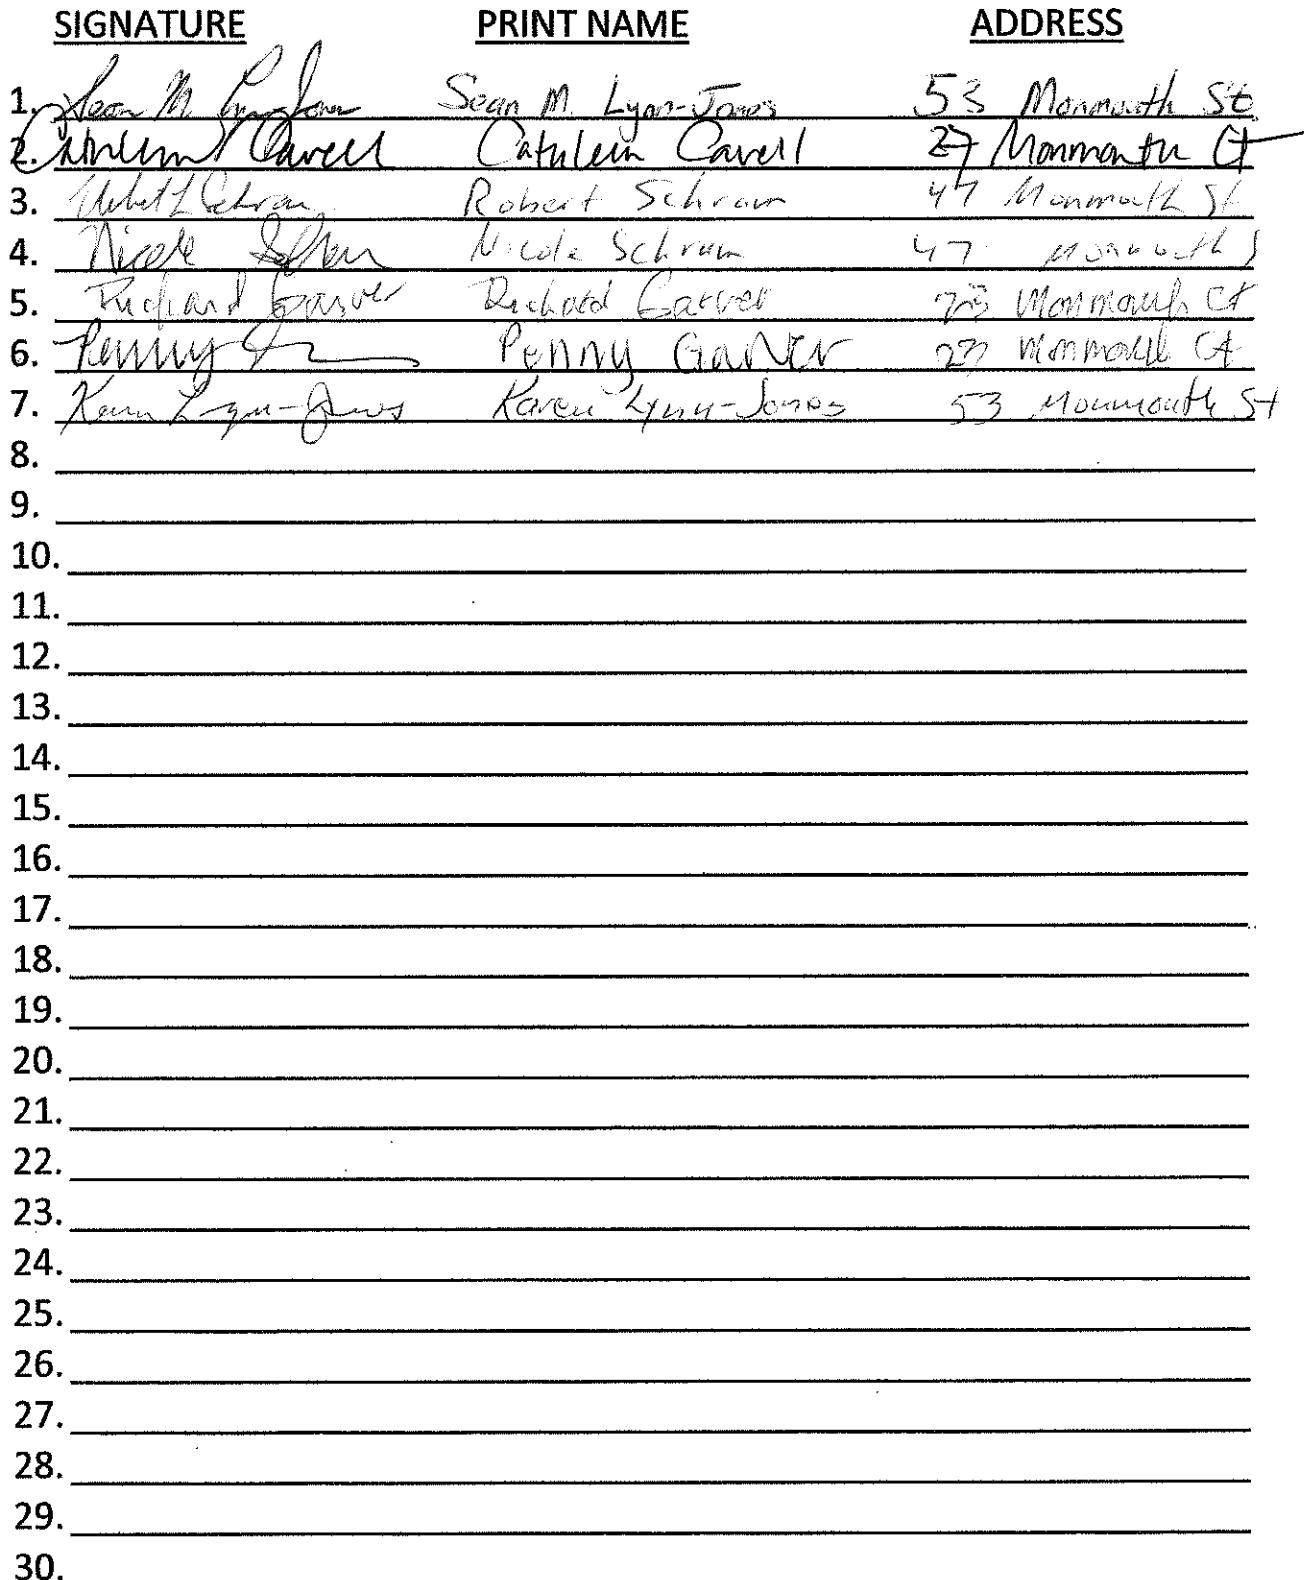 SIGNATURE PRINT NAME ADDRESS
1. Sean M. Lynn-Jones Sean M. Lynn-Jones 53 Monmouth St.
2. Cathleen Cavell Cathleen Cavell 27 Monmouth Ct
3. Robert Schram Robert Schram 47 Monmouth St
4. Nicole Nicole Schram 47 Monmouth S
5. Richard Garver Richard Garver Monmouth Ct
6. Penny Penny Garver 23 Monmouth Ct
7. Karen Lynn-Jones Karen Lynn-Jones 53 Monmouth St
8.
9.
10.
11.
12.
13.
14.
15.
16.
17.
18.
19.
20.
21.
22.
23.
24.
25.
26.
27.
28.
29.
30.